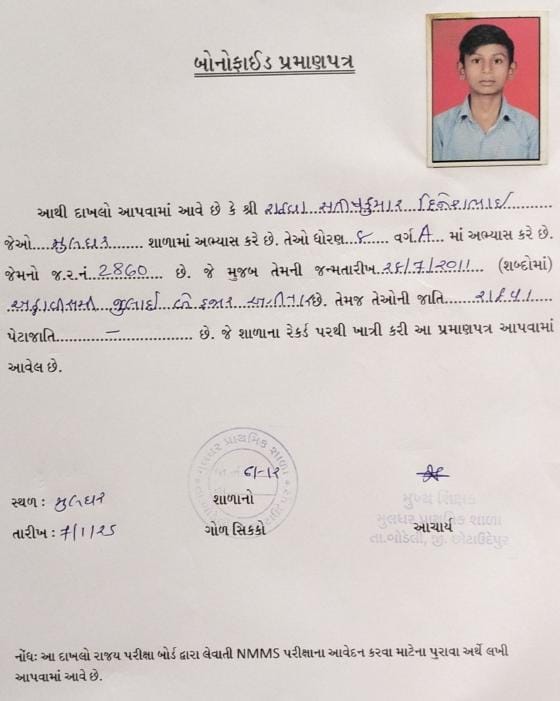 બોનોફાઈડ પ્રમાણપત્ર
આથી દાખલો આપવામાં આવે છે કે શ્રી રાઠવા સતીષકુમાર દિનેશભાઈ
જેઓ....મુલધર....... શાળામાં અભ્યાસ કરે છે. તેઓ ધોરણ..૮..... વર્ગ.A... માં અભ્યાસ કરે છે.
જેમનો જ.ર.નં.2860... છે. જે મુજબ તેમની જન્મતારીખ.૨૮/7/2011.... (શબ્દોમાં)
અઠ્ઠાવીસમી જુલાઈ બે હજાર છે. તેમજ તેઓની જાતિ.....રાઠવા.....
પેટાજાતિ...........–............... છે. જે શાળાના રેકર્ડ પરથી ખાત્રી કરી આ પ્રમાણપત્ર આપવામાં
આવેલ છે.
મુલધર પ્રાથમિક શાળા
સ્થળ : મુલધર
તારીખ : 7/1/25
શાળાનો
ગોળ સિક્કો
મુખ્ય શિક્ષક
મુલધર પ્રાથમિક શાળા
આચાર્ય
તા.બોડેલી, જી. છોટાઉદેપુર
નોંધઃ આ દાખલો રાજય પરીક્ષા બોર્ડ દ્વારા લેવાતી NMMS પરીક્ષાના આવેદન કરવા માટેના પુરાવા અર્થે લખી
આપવામાં આવે છે.